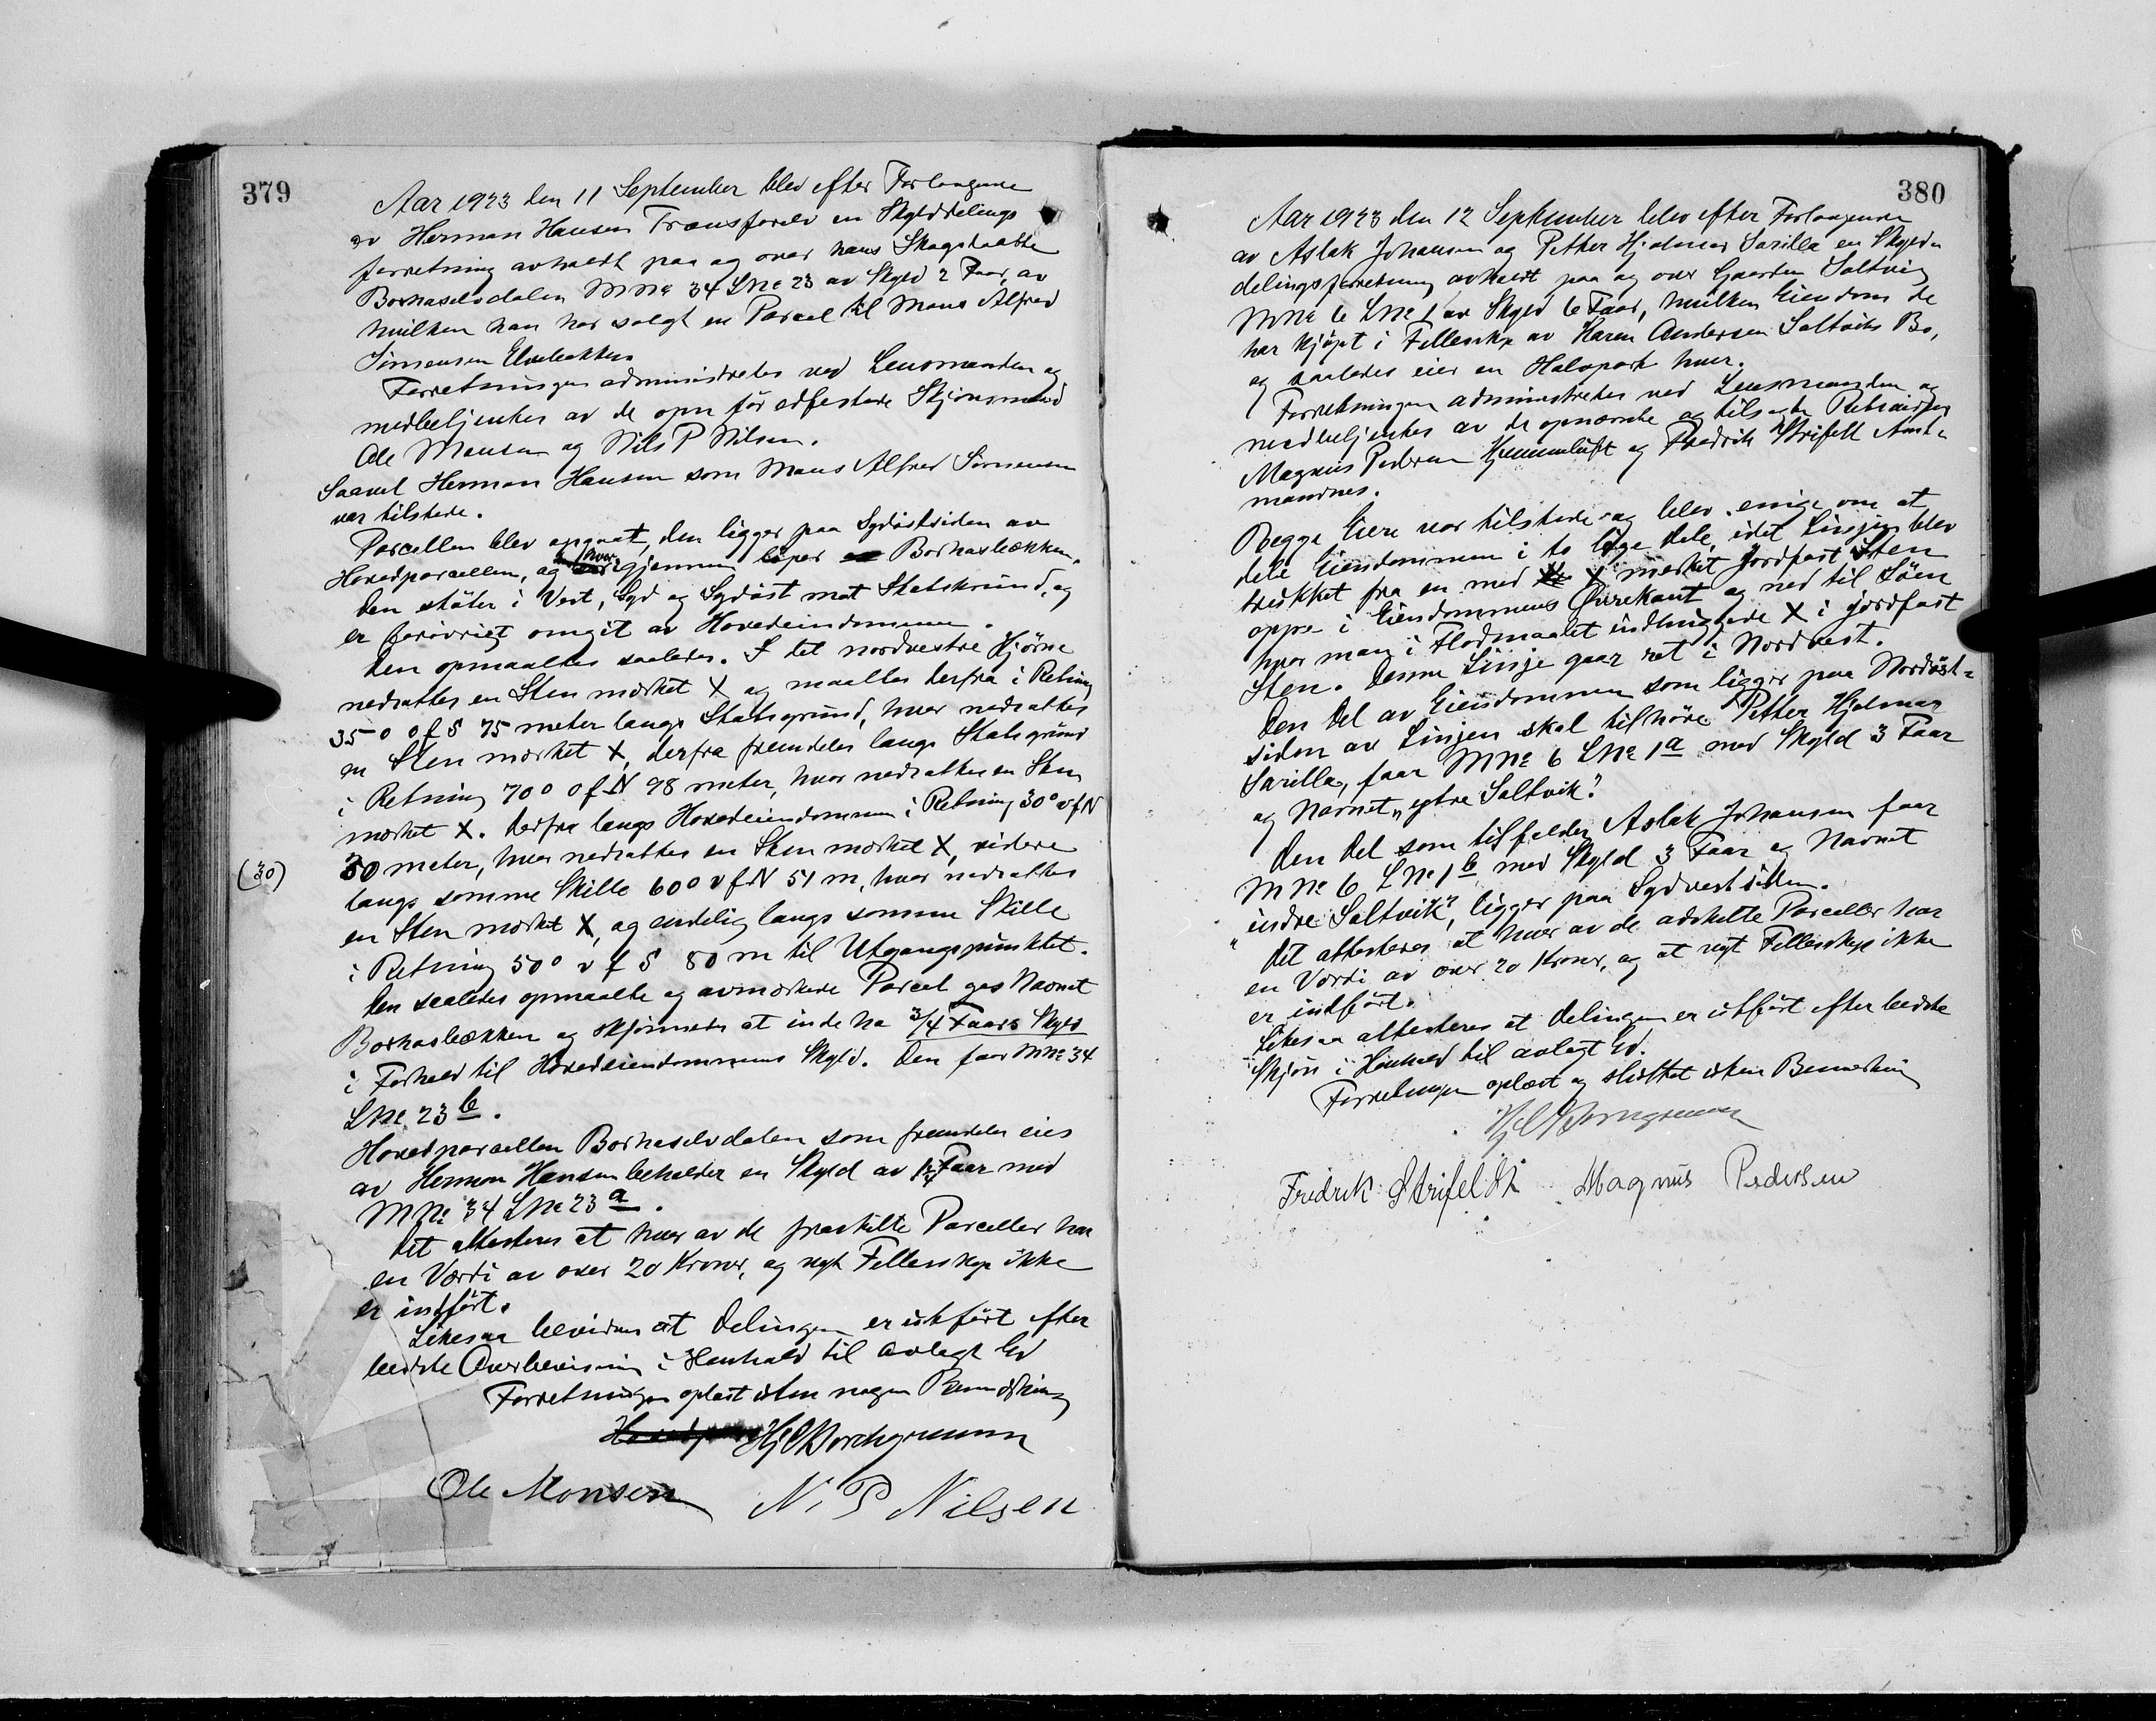 379
Aar 1923 den 11 September blev efter Forlangende
av Herman Hansen Transfarelv en Skylddelings
forretning avholdt paa og over hans Skogstrække
Borraselvdalen MNo 34 LNo 23 av Skyld 2 Faar, av
hvilken han har solgt en Parcel til Mons Alfred
Simensen Elvebakken.
Forretningen administreres ved Lensmanden og
medbetjentes av de opn før edfestede Skjønsmænd
Ole Monsen og Nils P Nilsen.
Saavel Herman Hansen som Mons Alfred Simensen
var tilstede.
Parcellen blev opgaat, den ligger paa Sydøstsiden av
Hovedparcellen, og hvor igjennem løper Borrasbækken.
Den støter i Vest, Syd og Sydøst mot Statsgrund, og
er forøvrigt omgit av Hovedeiendommen.
Den opmaaltes saaledes. I det nordvestre Hjørne
nedsattes en Sten mærket X og maaltes derfra i Retning
35° ø f S 75 meter langs Statsgrund, hvor nedsattes
en Sten mærket X, derfra fremdeles langs Statsgrund
i Retning 70° ø f N 98 meter, hvor nedsattes en Sten
mærket X. Derfra langs Hovedeiendommen i Retning 30° v f N
(30) 30 meter, hvor nedsattes en Sten mærket X, videre
langs samme Skille 60° v f N 51 m, hvor nedsattes
en Sten mærket X, og endelig langs samme Skille
i Retning 50° v f S 80 m til Utgangspunktet.
Den saaledes opmaalte og avmærkede Parcel gas Navnet
Borrasbækken og skjønnedes at indeha 3/4 Faars Skyld
i Forhold til Hovedeiendommens Skyld. Den faar MNo 34
LNo 23 b.
Hovedparcellen Borraselvdalen som fremdeles eies
av Herman Hansen beholder en Skyld av 1 1/4 Faar med
MNo 34 LNo 23 a.
Det attesteres at hver av de fraskilte Parceller har
en Værdi av over 20 Kroner, og nyt Fellesskap ikke
er indført.
Likesaa bevidnes at Delingen er utført efter
bedste Overbevisning i Henhold til avlagt Ed
Forretningen oplæst uten nogen Bemærkning
Hj C Borchgrevink
Ole Monsen N. P Nilsen
380
Aar 1923 den 12 September blev efter Forlangende
av Aslak Johansen og Petter Hjalmar Sarilla en Skyld-
delingsforretning avholdt paa og over Gaarden Saltvik
MNo 6 LNo 1 av Skyld 6 Faar, hvilken Eiendom de
har kjøpt i Fellesskap av Karen Andersen Saltviks Bo,
og saaledes eier en Halvpart hver.
Forretningen administreres ved Lensmanden og
medbetjentes av de opnævnte og tilsatte
Magnus Pedersen Kjæmmeluft og Fredrik Strifeldt Amt-
mandnes.
Begge Eiere var tilstede og blev enige om at
dele Eiendommen i to like dele, idet Linjen blev
trukket fra en med X mærket jordfast Sten
oppe i Eiendommens Øvrekant og ned til Søen
hvor man i Flodmaalet indhuggede X i jordfast
Sten. Denne Linje gaar ret i Nordvest.
Den Del av Eiendommen som ligger paa Nordøst-
siden av Linjen skal tilhøre Petter Hjalmar
Sarilla, faar MNo 6 LNo 1 a med Skyld 3 Faar
og Navnet „ytre Saltvik".
Den Del som tilfalder Aslak Johansen faar
MNo 6 LNo 1 b med Skyld 3 Faar og Navnet
„indre Saltvik", ligger paa Sydvestsiden.
Det attesteres at hver av de adskilte Parceller har
en Værdi av over 20 Kroner, og at nyt Fellesskap ikke
er indført.
Likesaa attesteres at Delingen er utført efter bedste
Skjøn i Henhold til avlagt Ed.
Forretningen oplæst og sluttet uten Bemerkning
Hj C Borchgrevink
Fredrik Strifeldt Magnus Pedersen